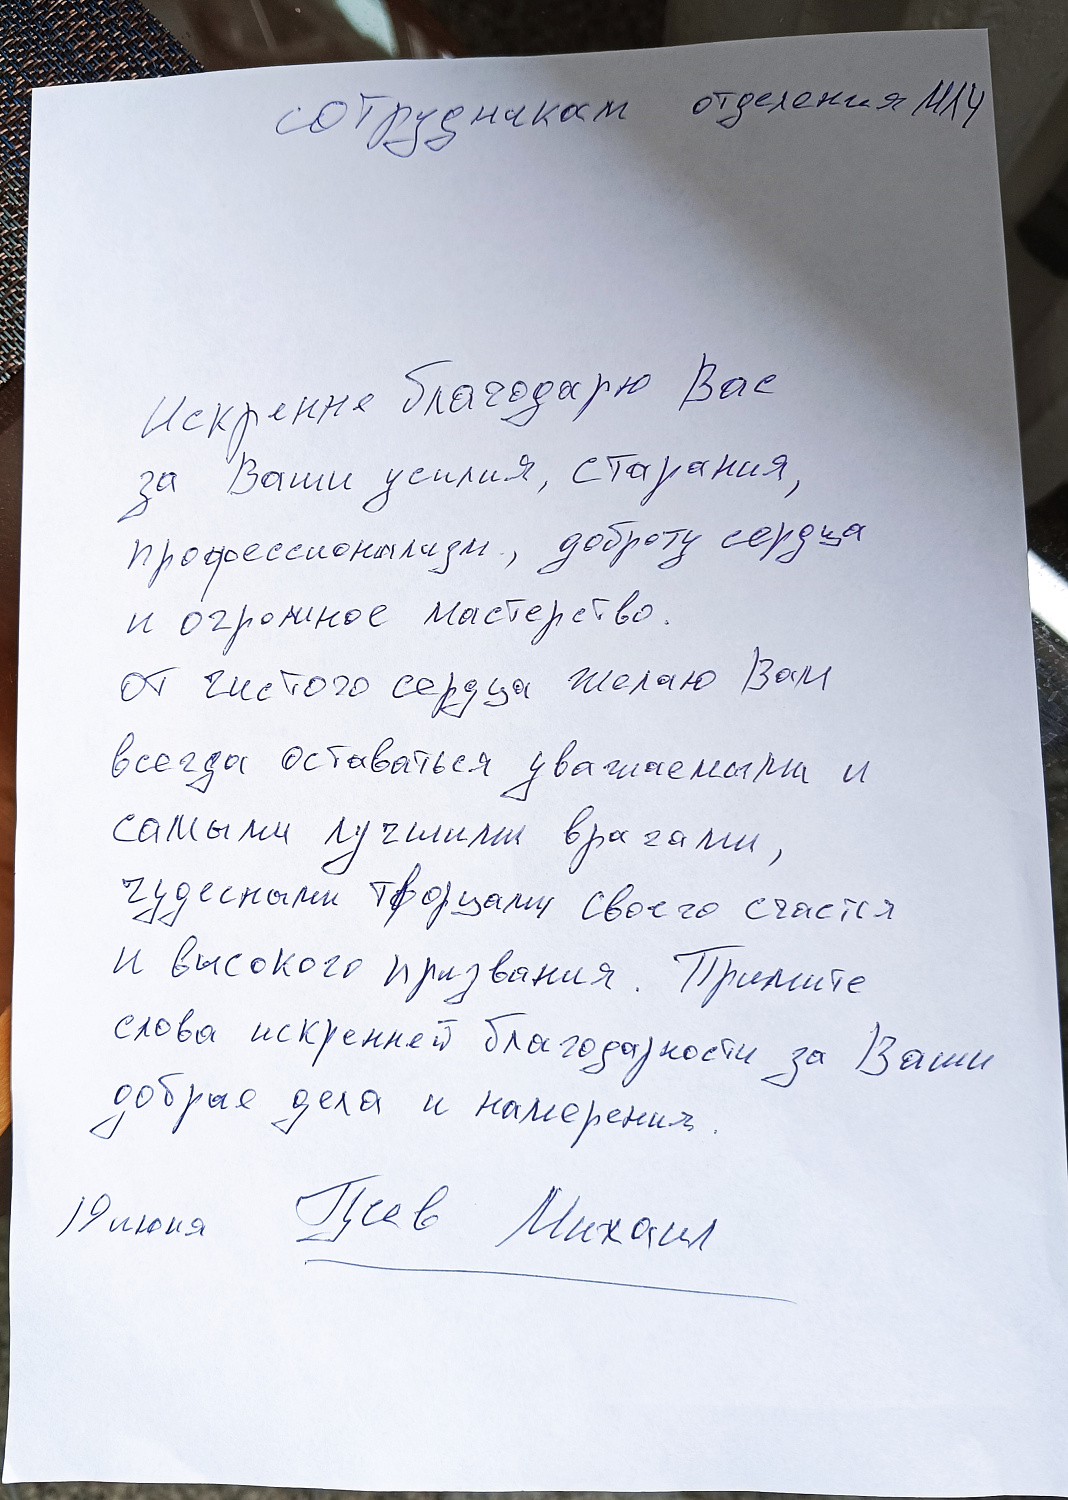 сотрудникам отделения МЛЧ
Искренне благодарю Вас
за Ваши усилия, старания,
профессионализм, доброту сердца
и огромное мастерство.
от чистого сердца желаю Вам
всегда оставаться уважаемыми и
самыми лучшими врачами,
чудесными творцами своего счастья
и высокого призвания. Примите
слова искренней благодарности за Ваши
добрые дела и намерения.
19 июня Михаил